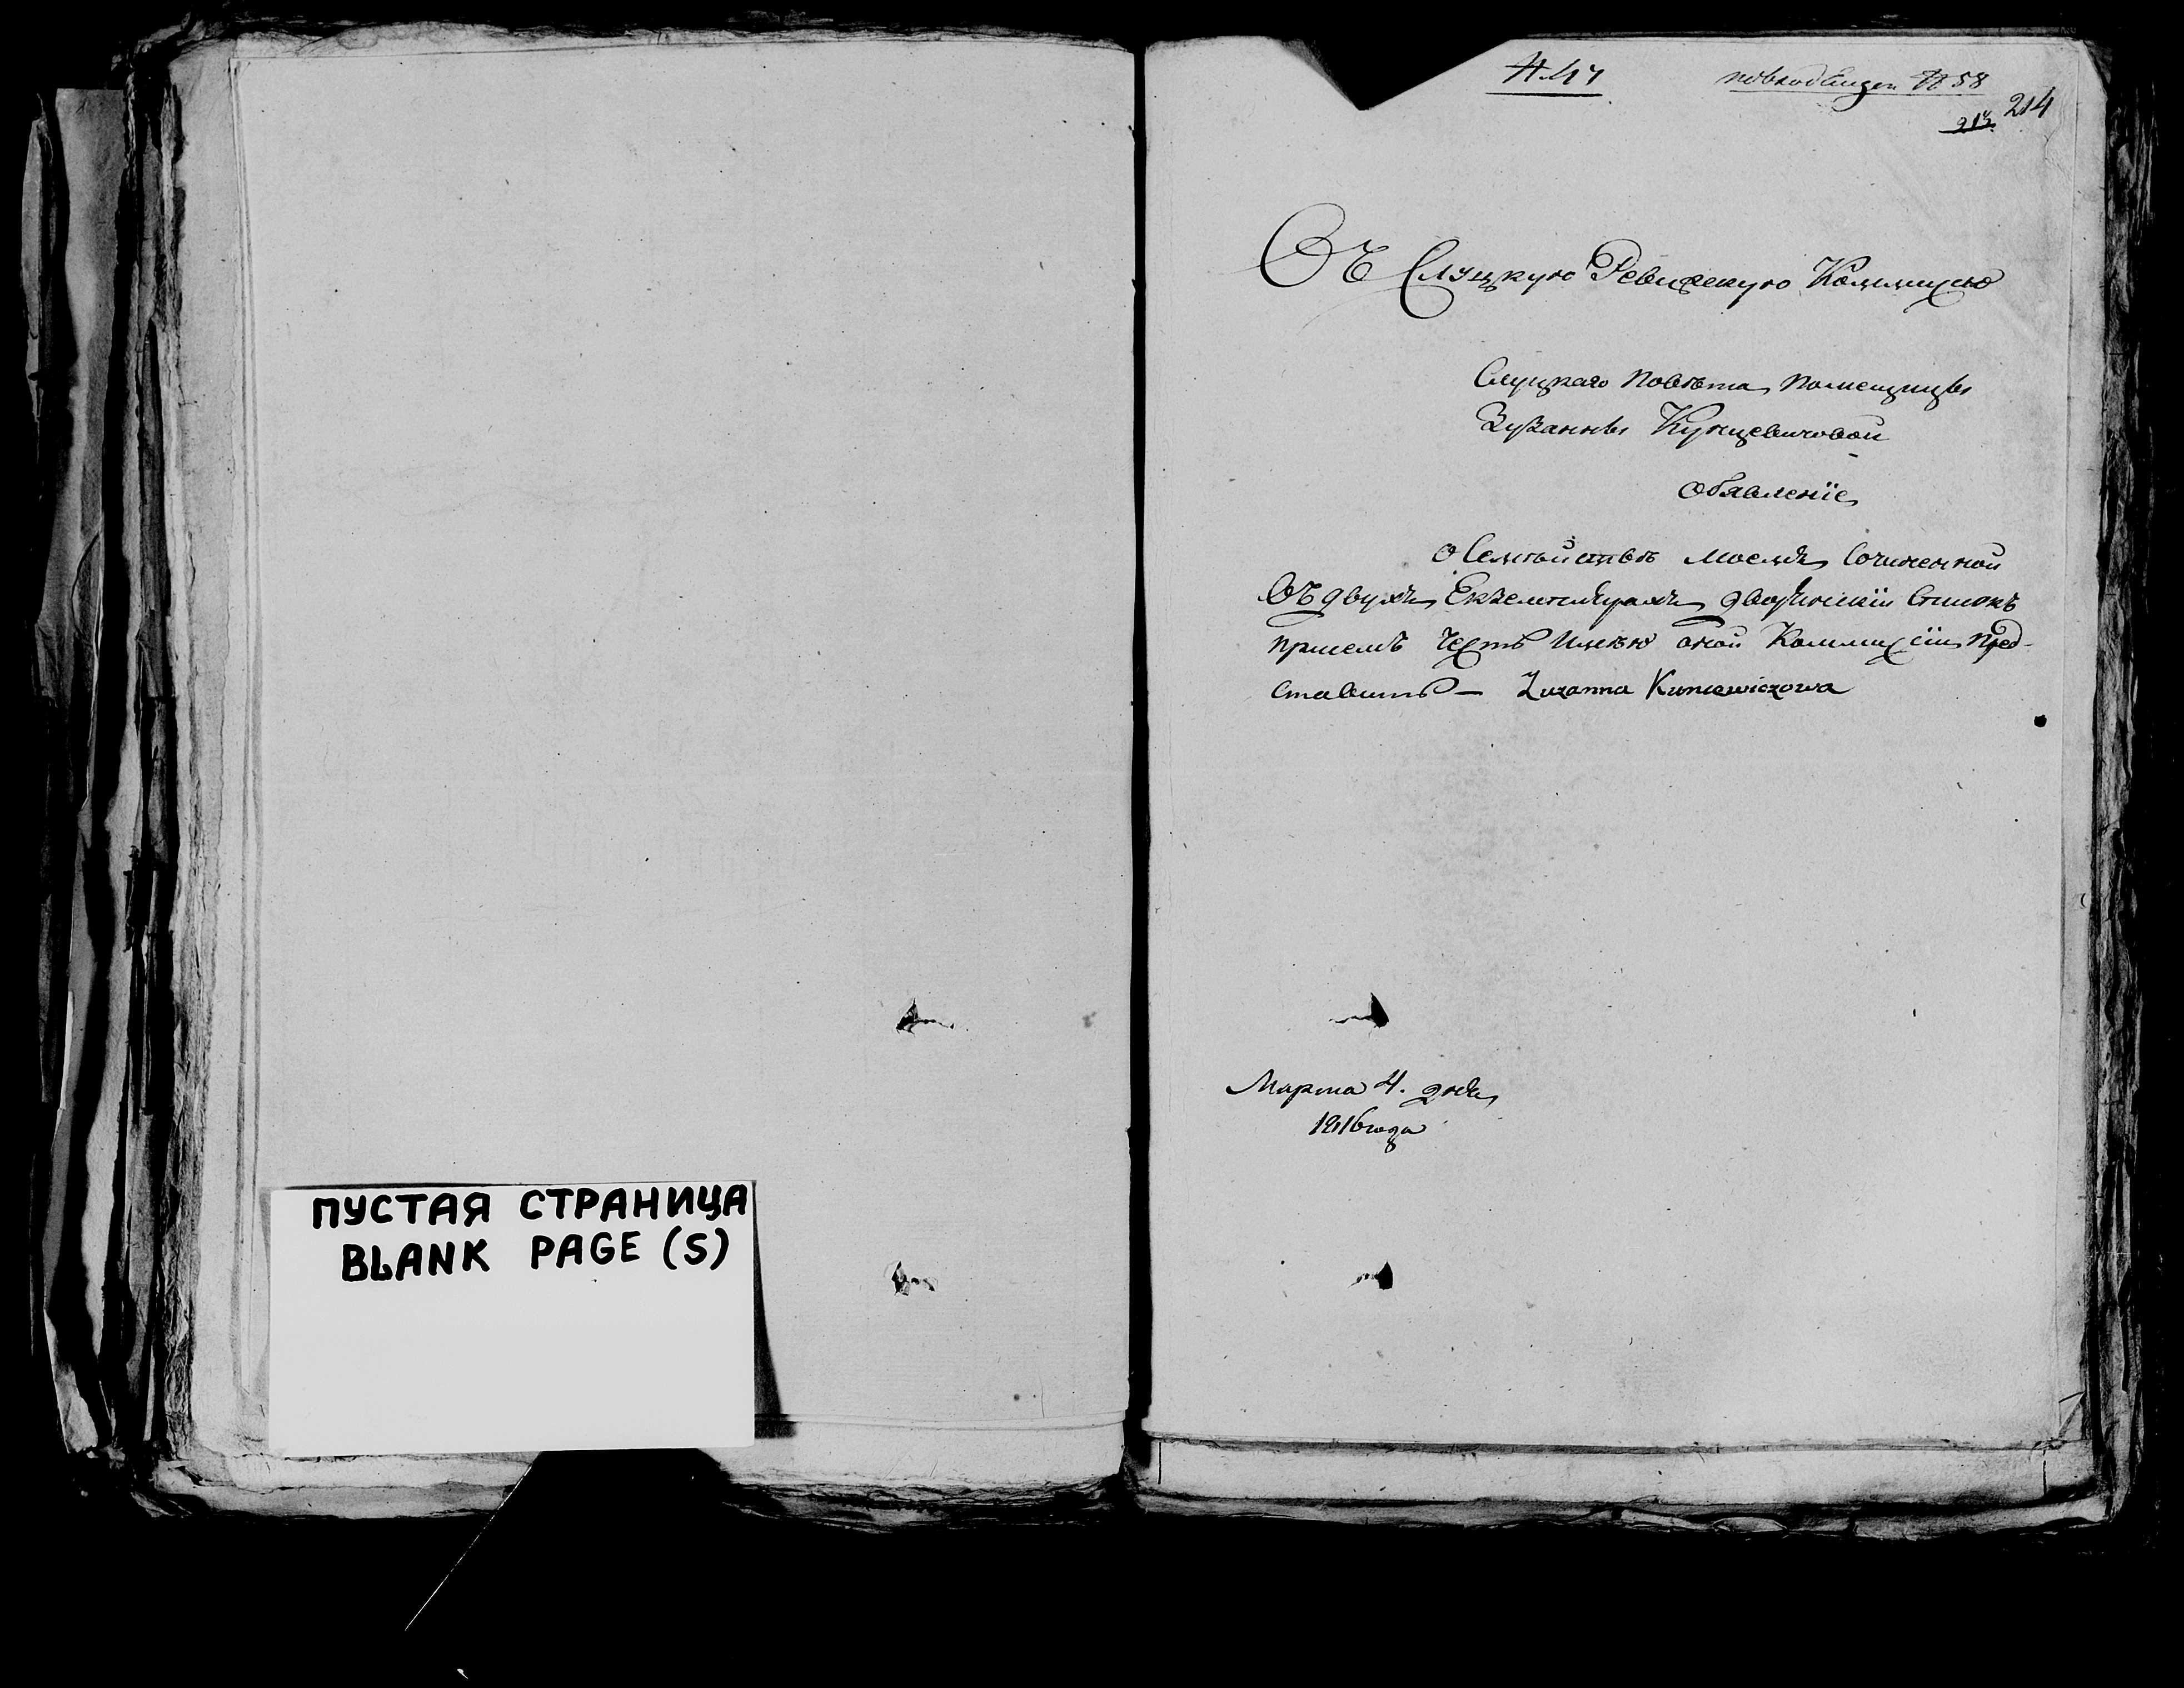 ПУСТАЯ СТРАНИЦА
BLANK PAGE (S)
№ 47
№ 58
213 214
Въ Слуцкую Ревизскую Коммисію
Слуцкаго повѣта помещицы
Зузанны Кунцевичовой
Обявленіе
О Семѣйствѣ моемъ Сочиненной
Въ двухъ Екземплярахъ дворянскій Списокъ
присемъ Честь Имѣю оной Коммисіи пред-
ставить — Zuzanna Kuncewiczowa
Марта 4. дня
1816 года